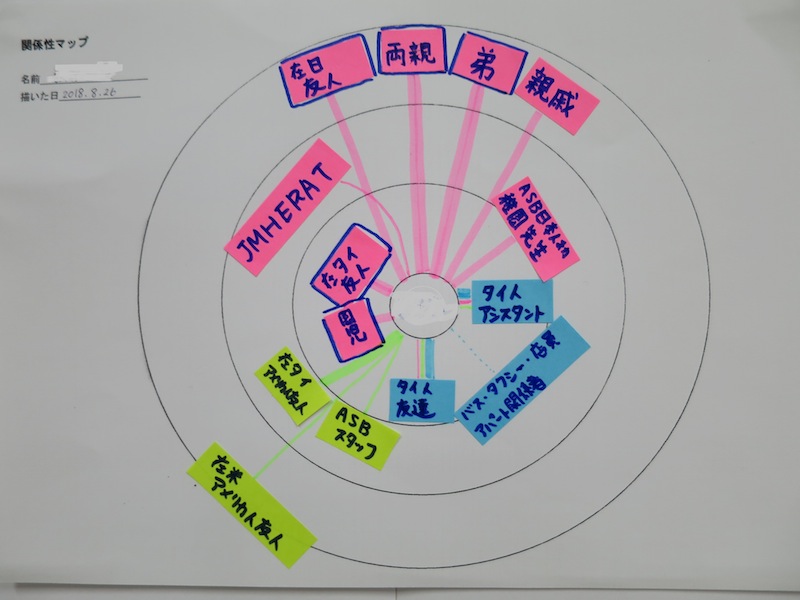 関係性マップ
名前
描いた日 2018.8.26
在日
友人
両親
弟
親戚
JMHERAT
ASB日本人幼
稚園先生
在タイ
友人
園児
タイ人
アシスタント
バス・タクシー・店員
アパート関係者
タイ人
友達
在タイ
アメリカ人友人
ASB
スタッフ
在米
アメリカ人友人